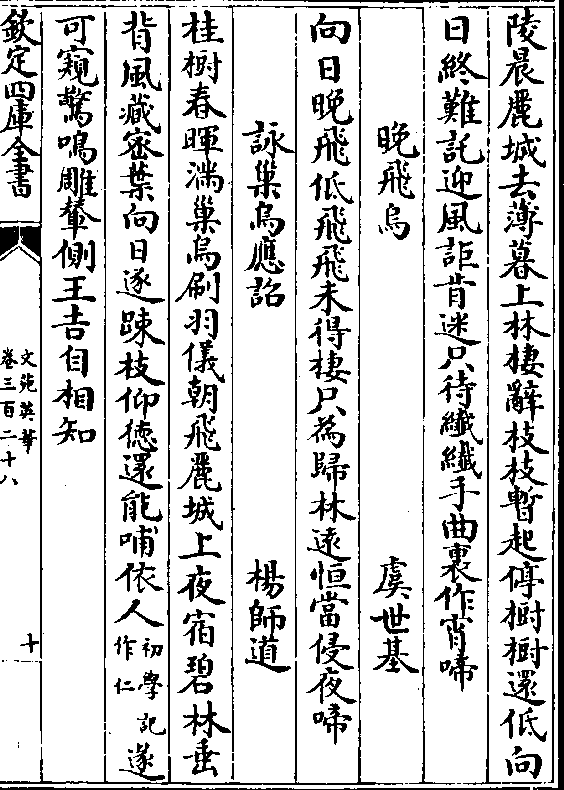 陵晨麗城去薄暮上林棲辭枝枝暫起停樹樹還低向
日終難託迎風詎肯迷只待纖纖手曲裏作宵啼
晚飛烏　虞世基
向日晚飛低飛飛未得棲只為歸林遠恒當侵夜啼
詠巢烏應詔　楊師道
桂樹春暉滿巢烏刷羽儀朝飛麗城上夜宿碧林垂
背風藏密葉向日逐踈枝仰德還能哺依人初學記作仁遂
可窺驚鳴雕輦側王吉自相知
欽定四庫全書
文苑英華
卷三百二十八
十